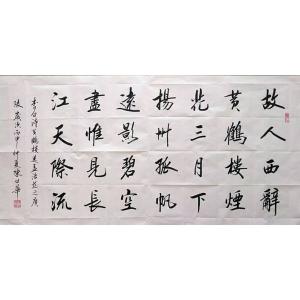 故人西辭
黃鶴樓煙
花三月下
揚州孤帆
遠影碧空
盡惟見長
江天際流
李白詩黃鶴樓送孟浩然之廣
陵歲次丙申仲夏陳